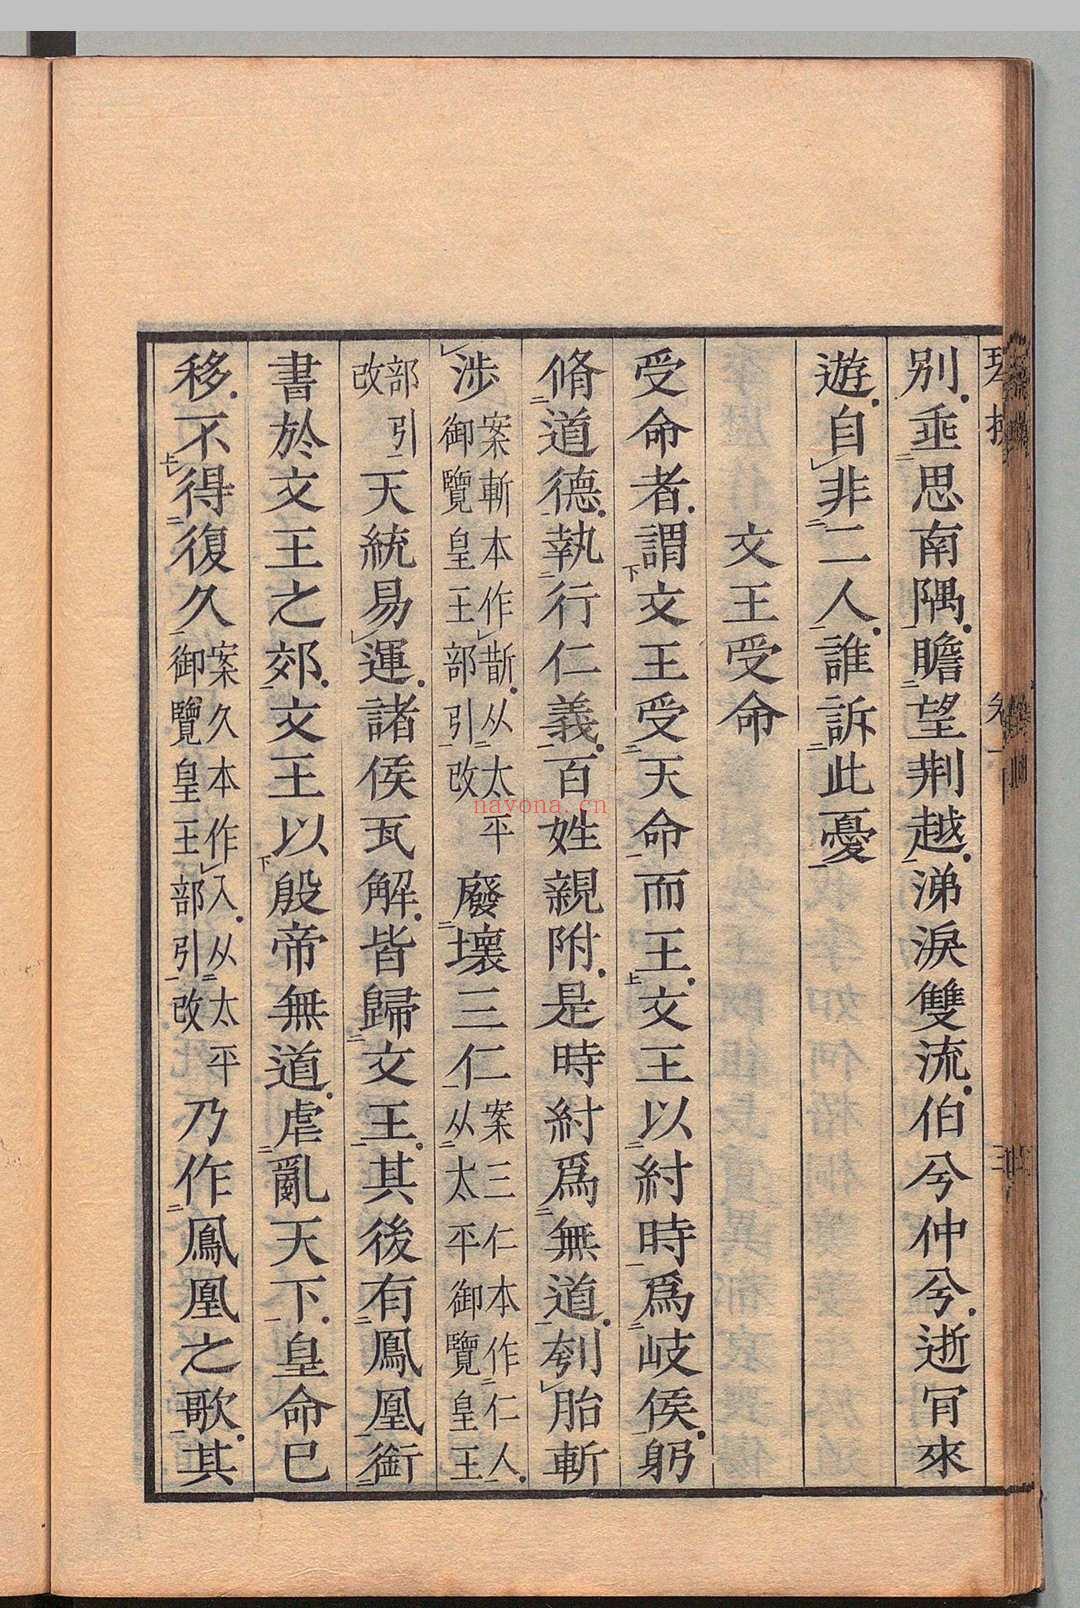 別埀思南隅瞻望荆越涕淚雙流伯兮仲兮逝肎來
遊自非二人誰訴此憂
文王受命
受命者謂文王受天命而王文王以紂時爲岐侯躬
脩道德執行仁義百姓親附是時紂爲無道刳胎斬
涉案斬本作斮从太平御覽皇王部引改廢壞三仁案三仁本作仁人从太平御覽皇王
部引改天統易運諸侯瓦解皆歸文王其後有鳳凰銜
書於文王之郊文王以殷帝無道虐亂天下皇命已
移不得復久案久本作入从太平御覽皇王部引改乃作鳳凰之歌其
nayona.cn